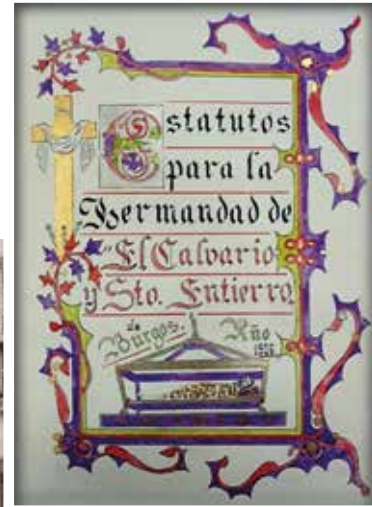 Estatutos
para la
Hermandad de
"El Calvario
y Sto. Entierro
de Burgos. Año